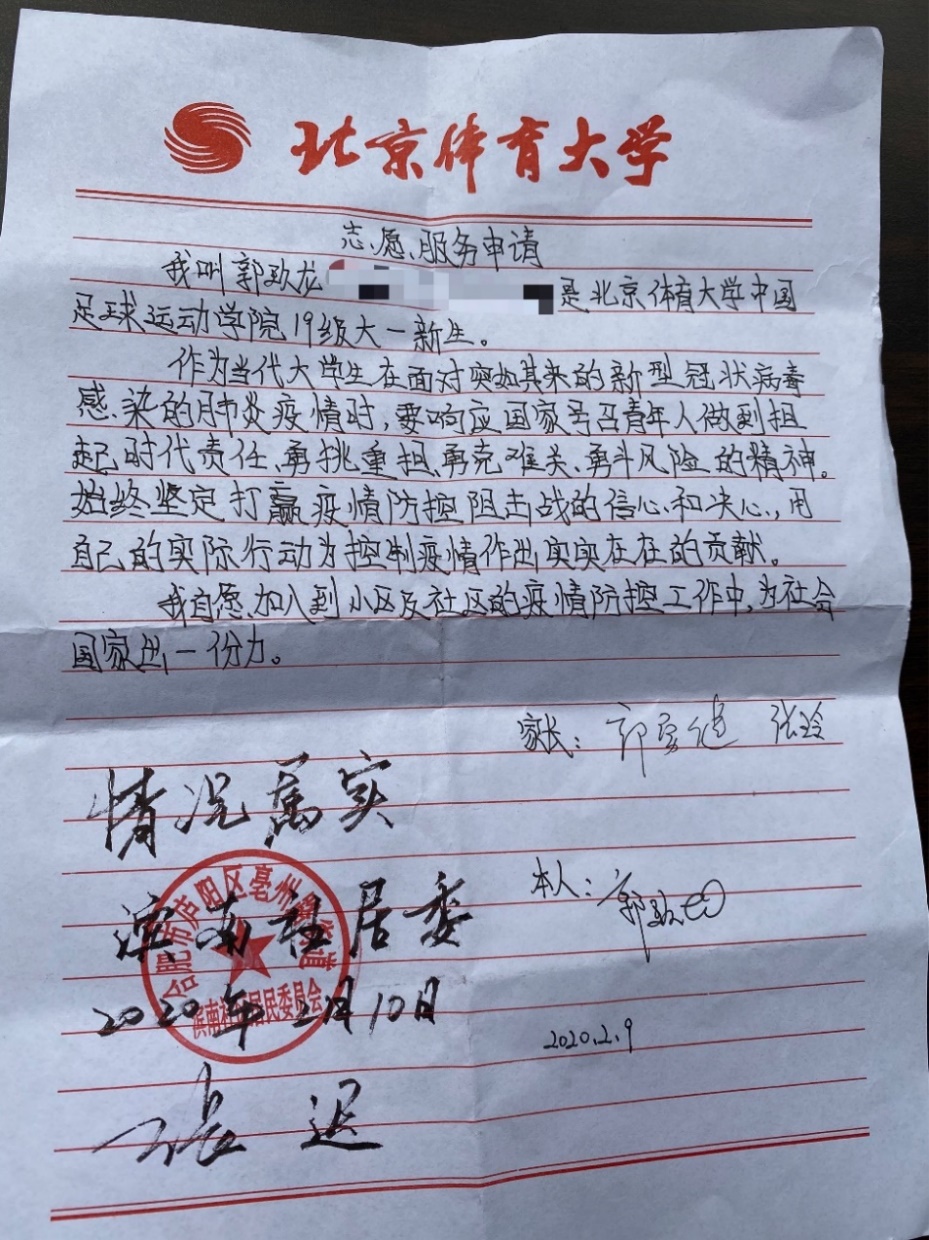 北京体育大学
志愿服务申请
我叫郭玖龙 是北京体育大学中国
足球运动学院19级大一新生。
作为当代大学生在面对突如其来的新型冠状病毒
感染的肺炎疫情时,要响应国家号召青年人做到担
起时代责任、勇挑重担、勇克难关、勇斗风险的精神。
始终坚定打赢疫情防控阻击战的信心和决心,用
自己的实际行动为控制疫情作出实实在在的贡献。
我自愿加入到小区及社区的疫情防控工作中,为社会
国家出一份力。
家长: 张玲
情况属实
本人:郭玖龙
合肥市庐阳区亳州路街道
滨南社居委
滨南社区居民委员会
2020年2月10日
2020.2.9
张迟